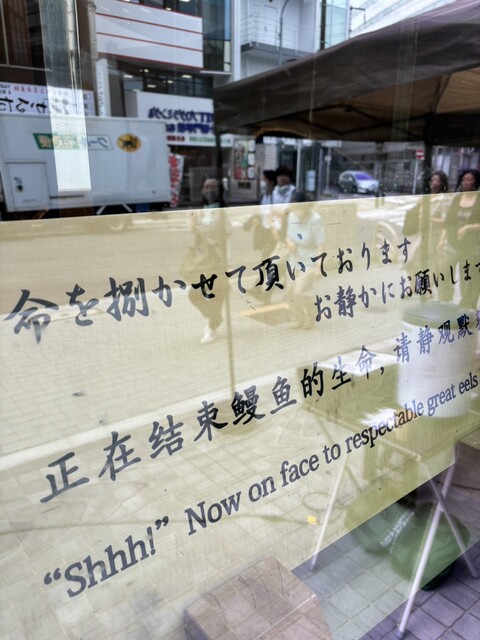 命を捌かせて頂いております
お静かにお願いします
正在结束鳗鱼的生命，请静观默
“Shhh!” Now on face to respectable great eels